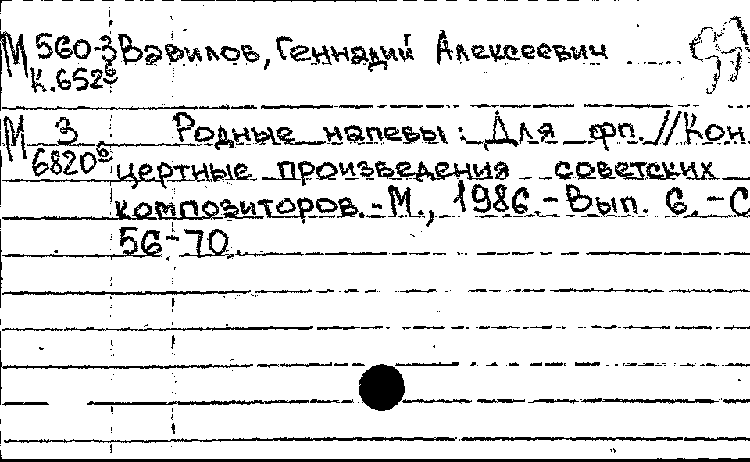 М 560-3 Вавилов, Геннадий Алексеевич
К.652
М 3 Родные напевы: Для фп. // Кон
6820 цертные произведения советских
композиторов. - М., 1986. - Вып. 6. - С
56-70.